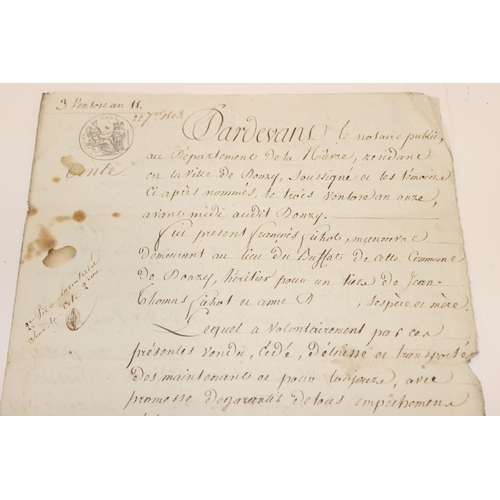 3 Ventose an 11.
Vente
Pardevant le notaire public,
au Département de la Nièvre, residant
en la Ville de Donzy, soussigné et les témoins
Ci après nommés, le trois Ventose an onze,
avant midi audit Donzy.
fut present françois manoeuvre
demeurant au lieu du Buffat de cette Commune
de Donzy, héritier pour un tiers de Jean
Thomas et anne ses père et mère.
Lequel a Volontairement par ces
présentes Vendu, Cédé, Délaissé et transporté
dès maintenant et pour toujours, avec
promesse de garantir de tous empêchemens